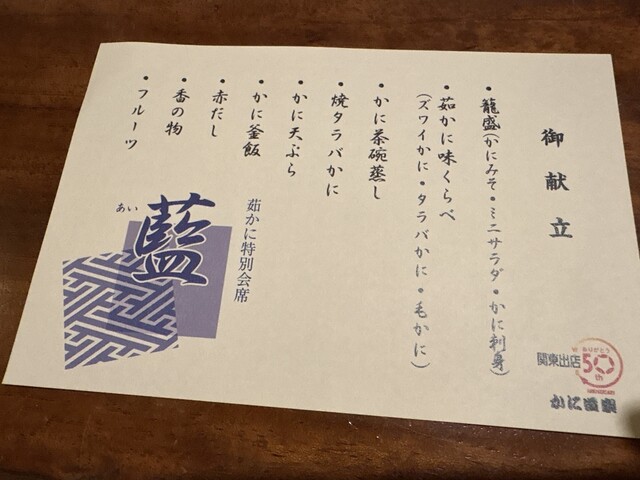 御献立
・籠盛(かにみそ・ミニサラダ・かに刺身)
・茹かに味くらべ
(ズワイかに・タラバかに・毛かに)
・かに茶碗蒸し
・焼タラバかに
・かに天ぷら
・かに釜飯
・赤だし
・香の物
・フルーツ
茹かに特別会席
藍
あい
関東出店
ありがとう
50th
かに道楽